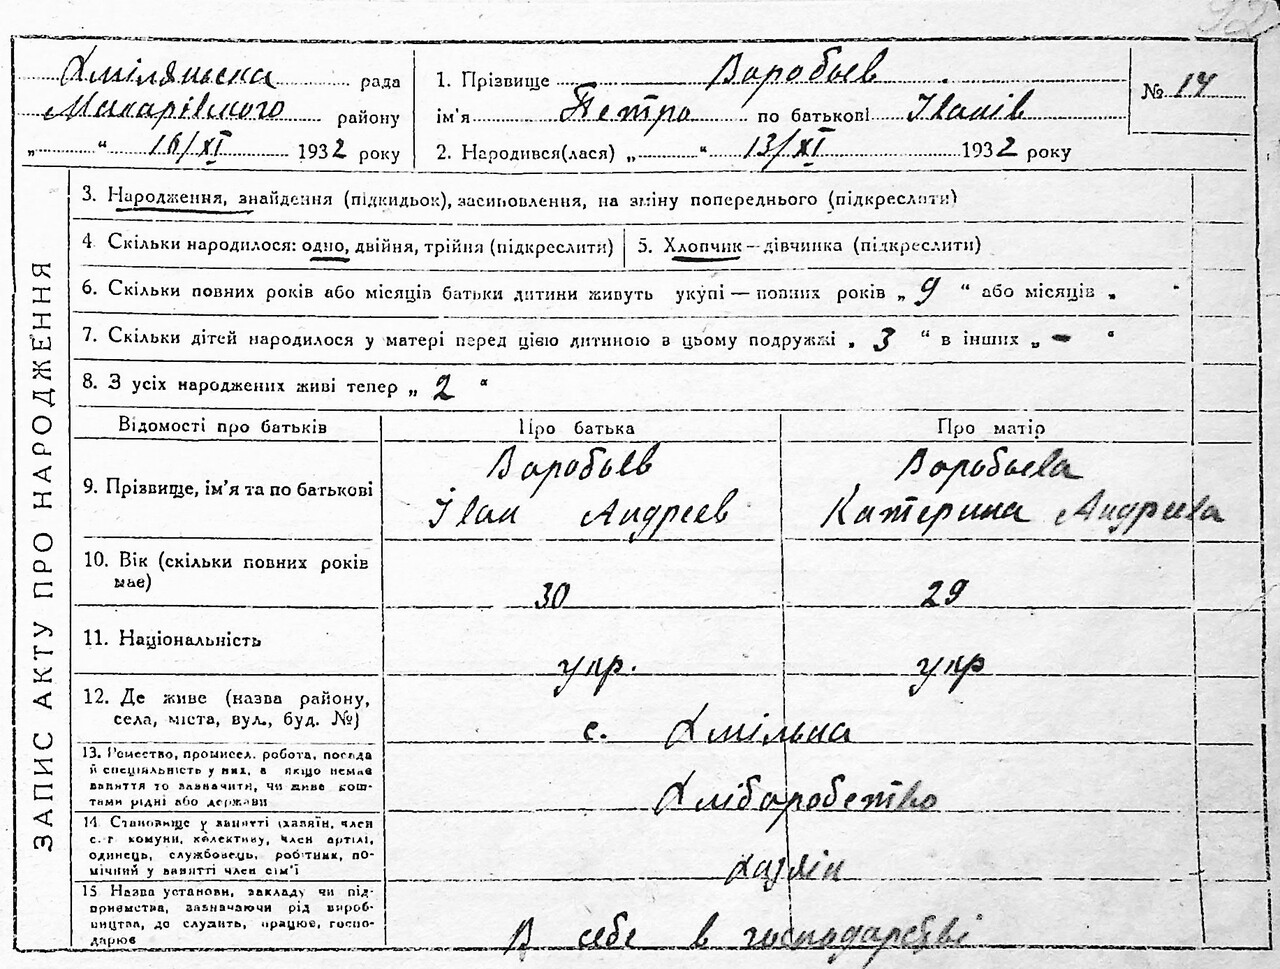 92
Хмілянська рада
Макарівського району
„ “ 16/XI 1932 року
1. Прізвище Воробьев
ім'я Петро по батькові Іванів
2. Народився(лася) „ “ 13/XI 1932 року
№ 14
ЗАПИС АКТУ ПРО НАРОДЖЕННЯ
3. Народження, знайдення (підкидьок), засиновлення, на зміну попереднього (підкреслити)
4 Скільки народилося: одно, двійня, трійня (підкреслити)
5. Хлопчик — дівчинка (підкреслити)
6. Скільки повних років або місяців батьки дитини живуть укупі — повних років „ 9 “ або місяців „
7. Скільки дітей народилося у матері перед цією дитиною в цьому подружжі „ 3 “ в інших „ - “
8. З усіх народжених живі тепер „ 2 “
Відомості про батьків
Про батька
Про матір
9. Прізвище, ім'я та по батькові
Воробьев
Іван Андреев
Воробьева
Катерина Андреева
10. Вік (скільки повних років має)
30
29
11. Національність
укр.
укр
12. Де живе (назва району,
села, міста, вул., буд. №)
с. Хмільна
13. Ремество, промисел, робота, посада
й спеціяльність у них, а якщо немає
заняття то зазначити, чи живе кош-
тами рідні або держави
Хліборобство
14. Становище у занятті (хазяїн, член
с.-г комуни, колективу, член артілі,
одинець, службовець, робітник, по-
мічний у занятті член сім'ї
Хазяїн
15 Назва установи, закладу чи під-
приємства, зазначаючи рід вироб-
ництва, де служить, працює, госпо-
дарює
В себе в господарстві